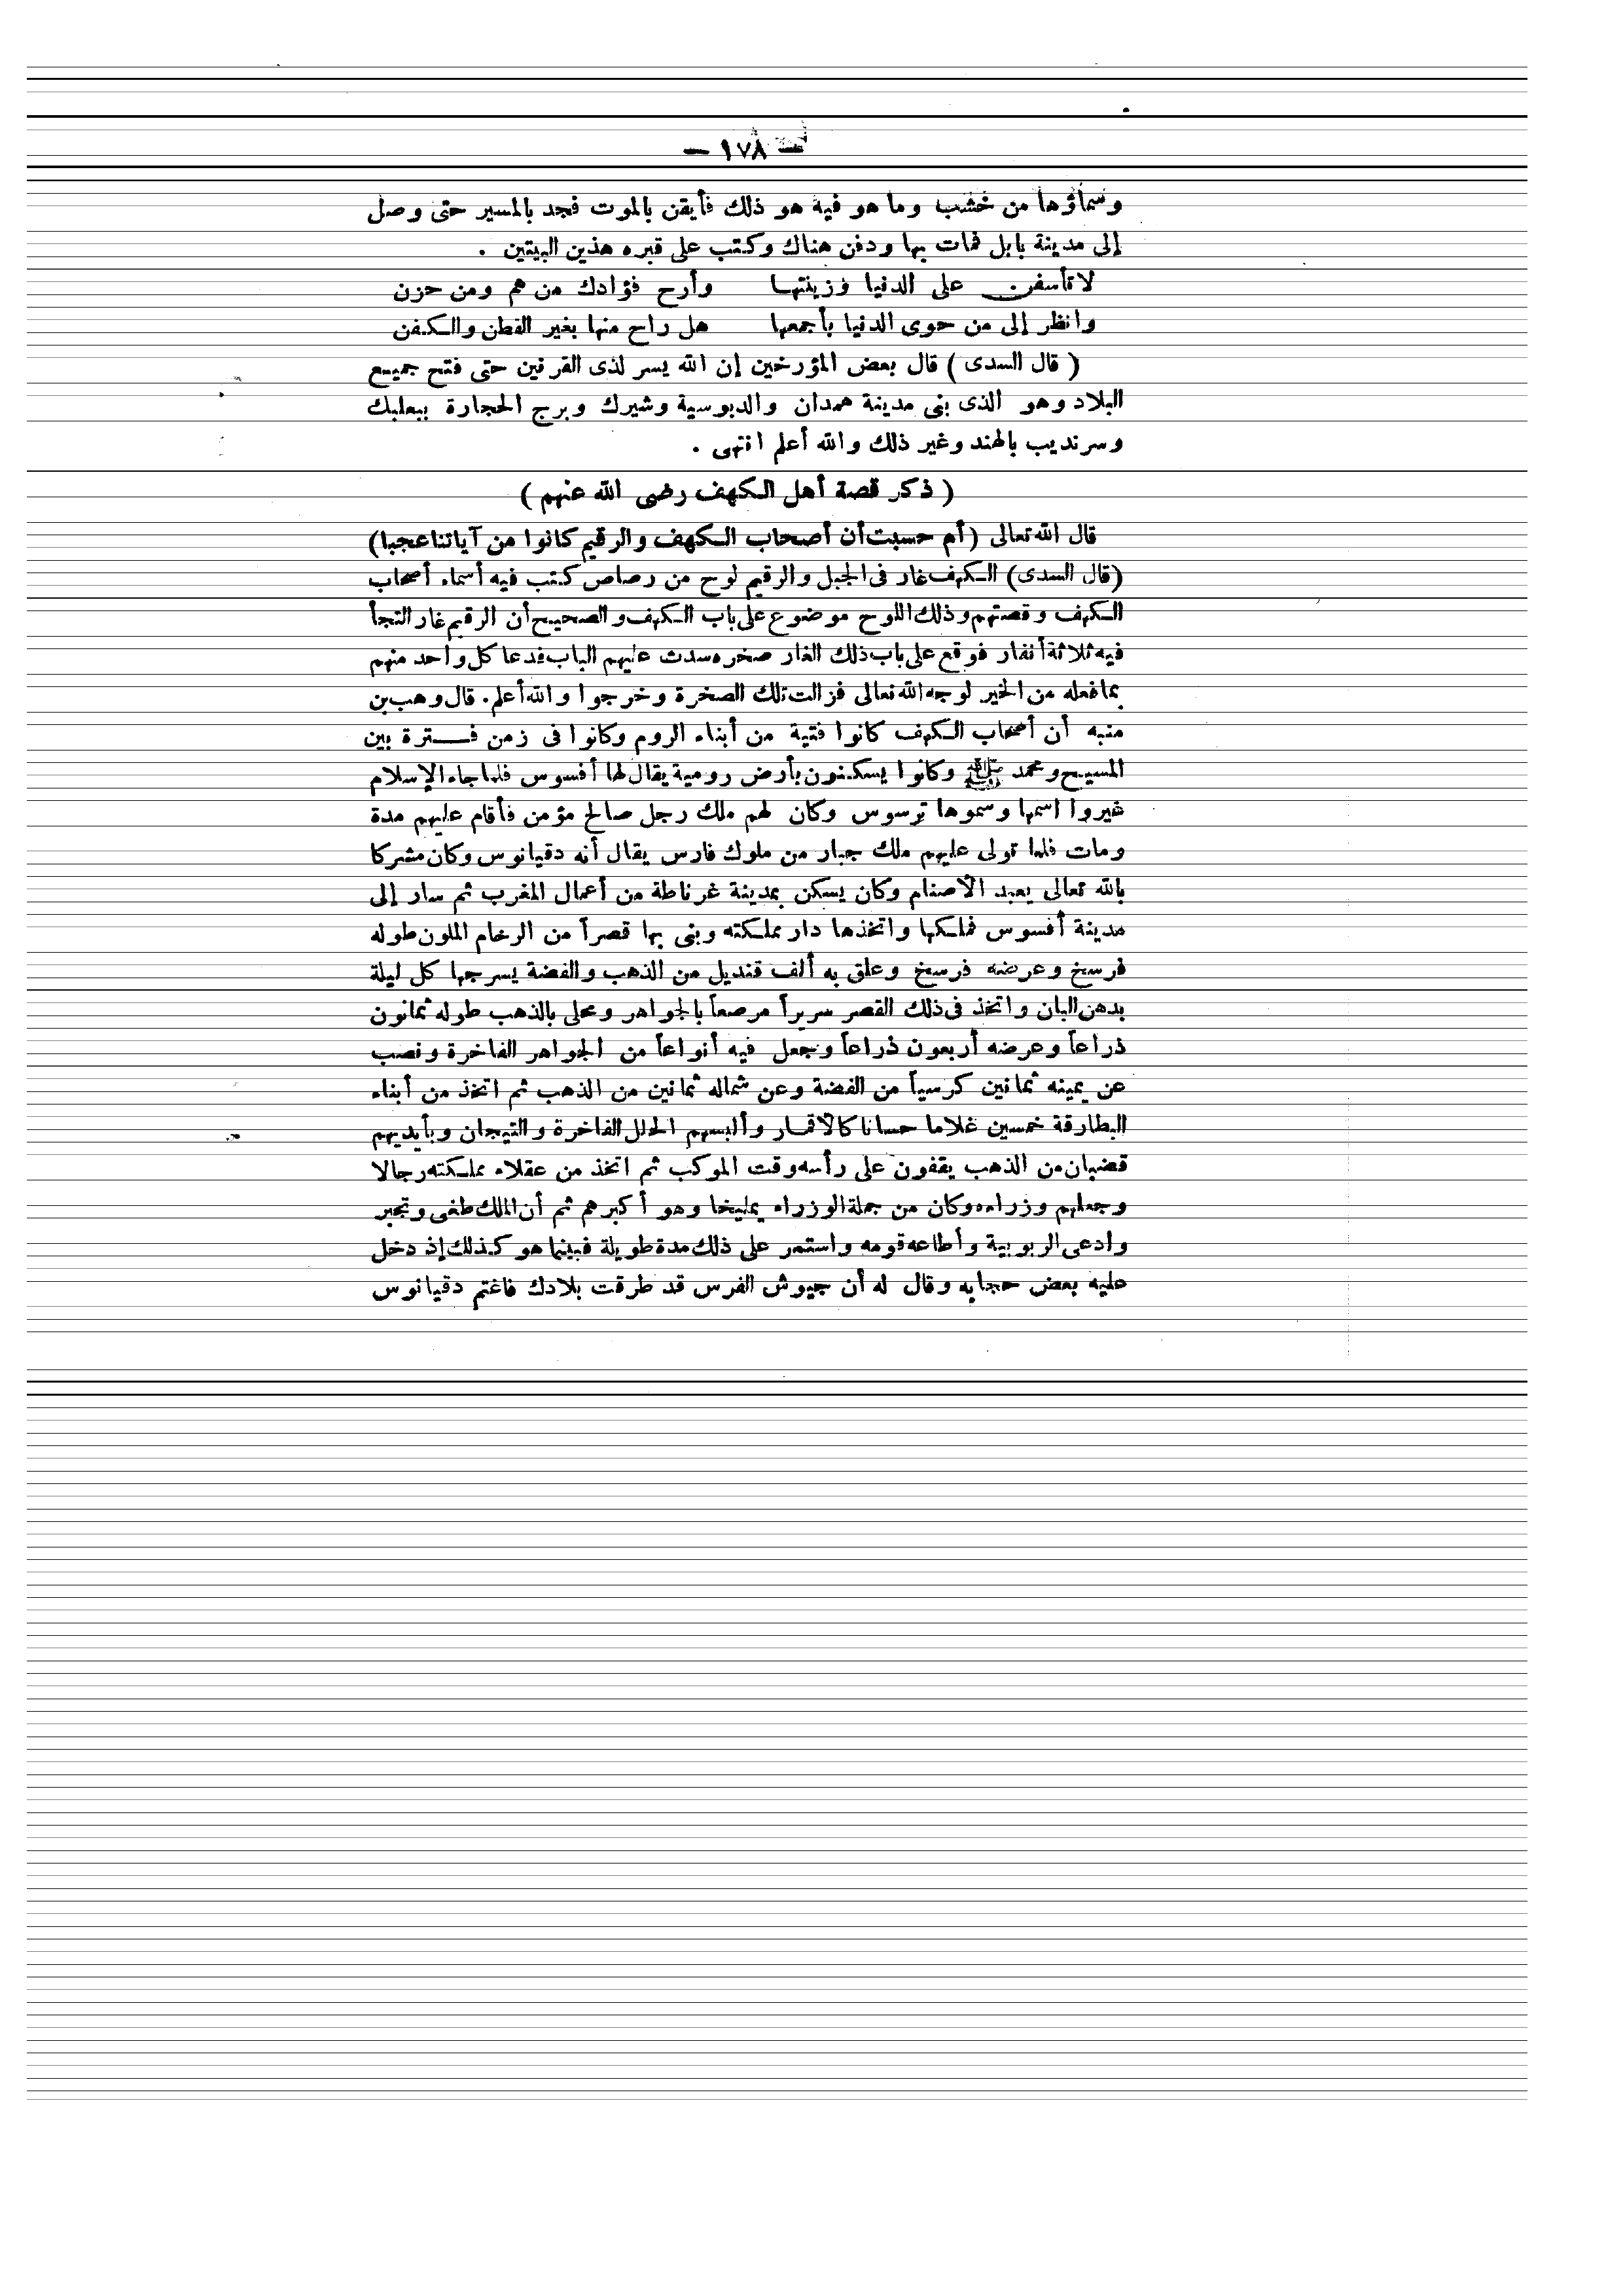 — ١٧٨ —
وسماؤها من خشب وما هو فيه هو ذلك فأيقن بالموت فجد بالمسير حتى وصل
إلى مدينة بابل فمات بها ودفن هناك وكتب على قبره هذين البيتين .
لا تأسفن على الدنيا وزينتها وأرح فؤادك من هم ومن حزن
وانظر إلى من حوى الدنيا بأجمعها هل راح منها بغير القطن والكفن
( قال السدى ) قال بعض المؤرخين إن الله يسر لذى القرنين حتى فتح جميع
البلاد وهو الذى بنى مدينة همدان والدبوسية وشيرك وبرج الحجارة ببعلبك
وسرنديب بالهند وغير ذلك والله أعلم انتهى .
( ذكر قصة أهل الكهف رضى الله عنهم )
قال الله تعالى (أم حسبت أن أصحاب الكهف والرقيم كانوا من آياتنا عجبا)
(قال السدى) الكهف غار فى الجبل والرقيم لوح من رصاص كتب فيه أسماء أصحاب
الكهف وقصتهم وذلك اللوح موضوع على باب الكهف والصحيح أن الرقيم غار التجأ
فيه ثلاثة أنفار فوقع على باب ذلك الغار صخره سدت عليهم الباب فدعا كل واحد منهم
بما فعله من الخير لوجه الله تعالى فزالت تلك الصخرة وخرجوا والله أعلم. قال وهب بن
منبه أن أصحاب الكهف كانوا فتية من أبناء الروم وكانوا فى زمن فترة بين
المسيح ومحمد ﷺ وكانوا يسكنون بأرض رومية يقال لها أفسوس فلما جاء الإسلام
غيروا اسمها وسموها ترسوس وكان لهم ملك رجل صالح مؤمن فأقام عليهم مدة
ومات فلما تولى عليهم ملك جبار من ملوك فارس يقال أنه دقيانوس وكان مشركا
بالله تعالى يعبد الأصنام وكان يسكن بمدينة غرناطة من أعمال المغرب ثم سار إلى
مدينة أفسوس فملكها واتخذها دار مملكته وبنى بها قصراً من الرخام الملون طوله
فرسخ وعرضه فرسخ وعلق به ألف قنديل من الذهب والفضة يسرجها كل ليلة
بدهن البان واتخذ فى ذلك القصر سريراً مرصعاً بالجواهر ومحلى بالذهب طوله ثمانون
ذراعاً وعرضه أربعون ذراعاً وجعل فيه أنواعاً من الجواهر الفاخرة ونصب
عن يمينه ثمانين كرسياً من الفضة وعن شماله ثمانين من الذهب ثم اتخذ من أبناء
البطارقة خمسين غلاما حسانا كالأقمار وألبسهم الحلل الفاخرة والتيجان وبأيديهم
قضبان من الذهب يقفون على رأسه وقت الموكب ثم اتخذ من عقلاء مملكته رجالا
وجعلهم وزراءه وكان من جملة الوزراء يمليخا وهو أكبرهم ثم أن الملك طغى وتجبر
وادعى الربوبية وأطاعه قومه واستمر على ذلك مدة طويلة فبينما هو كذلك إذ دخل
عليه بعض حجابه وقال له أن جيوش الفرس قد طرقت بلادك فاغتم دقيانوس